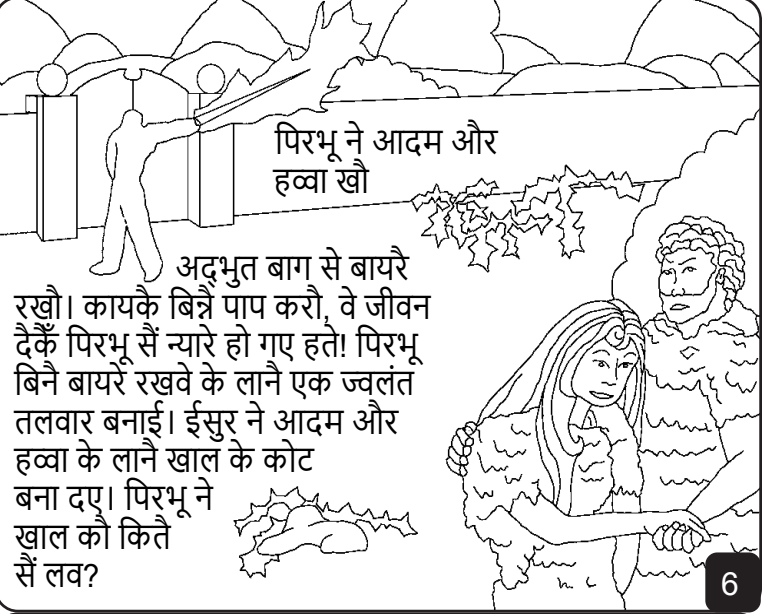 पिरभू ने आदम और
हव्वा खौ
अद्भुत बाग से बायरै
रखौ। कायकै बिन्नै पाप करौ, वे जीवन
दैकैँ पिरभू सैं न्यारे हो गए हते! पिरभू
बिनै बायरे रखवे के लानै एक ज्वलंत
तलवार बनाई। ईसुर ने आदम और
हव्वा के लानै खाल के कोट
बना दए। पिरभू ने
खाल कौ कितै
सैं लव?
6